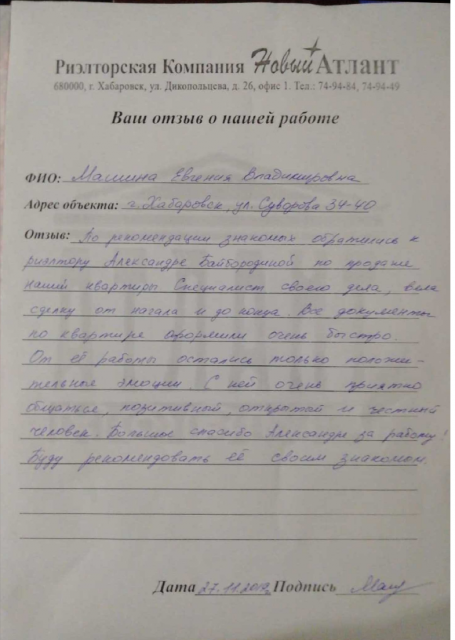 Риэлторская Компания Новый Атлант
680000, г. Хабаровск, ул. Дикопольцева, д. 26, офис 1. Тел.: 74-94-84, 74-94-49
Ваш отзыв о нашей работе
ФИО: Малина Евгения Владимировна
Адрес объекта: г. Хабаровск, ул. Суворова 34-40
Отзыв: По рекомендации знакомых обратились к
риэлтору Александре Байбородиной по продаже
нашей квартиры Специалист своего дела, вела
сделку от начала и до конца. Все документы
по квартире оформили очень быстро.
От её работы остались только положи-
тельные эмоции. С ней очень приятно
общаться, позитивный, открытый и честный
человек. Большое спасибо Александре за работу!
Буду рекомендовать её своим знакомым.
Дата 27.11.2017 Подпись